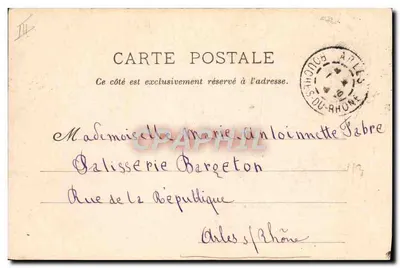 CARTE POSTALE
Ce côté est exclusivement réservé à l'adresse.
ARLES
BOUCHES-DU-RHÔNE
Mademoiselle Marie Antoinette Fabre
Patisserie Bargeton
Rue de la République
Arles s/Rhône